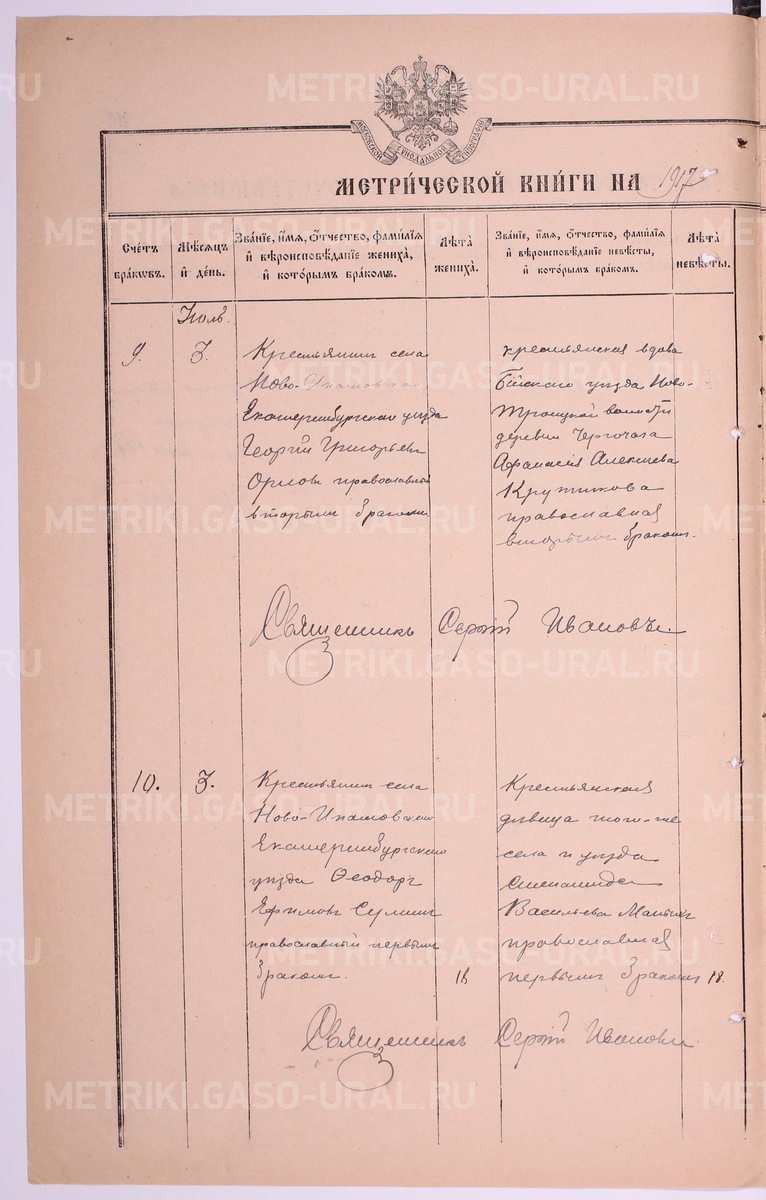 METRIKI.GASO-URAL.RU
МОСКОВСКОЙ СѴНОДАЛЬНОЙ ТИПОГРАФІИ
МЕТРИ́ЧЕСКОЙ КНИ́ГИ НА 1917
Сче́тъ бра́ковъ.
Мѣ́сяцъ и҆ де́нь.
Зва́нїе, и҆́мя, ѻ҆́тчество, фами́лїя и҆ вѣроисповѣ́данїе жениха̀, и҆ кото́рымъ бра́комъ.
Лѣ́та жениха̀.
Зва́нїе, и҆́мя, ѻ҆́тчество, фами́лїя и҆ вѣроисповѣ́данїе невѣ́сты, и҆ кото́рымъ бра́комъ.
Лѣ́та невѣ́сты.
9.
3.
Крестьянинъ села
Ново-Ипатовскаго
Екатеринбургскаго уѣзда
Георгій Григорьевъ
Орловъ православный
вторымъ бракомъ
крестьянская вдова
Бійскаго уѣзда Ново-
Троицкой волости
деревни
Афанасія Алексѣева
Крутикова
православная
вторымъ бракомъ.
Священникъ Сергій Ивановъ.
10.
3.
Крестьянинъ села
Ново-Ипатовскаго
Екатеринбургскаго
уѣзда Ѳеодоръ
Ефимовъ
православный первымъ
бракомъ.
18
Крестьянская
дѣвица того-же
села и уѣзда
Степанида
Васильева
православная
первымъ бракомъ
18.
Священникъ Сергій Ивановъ.